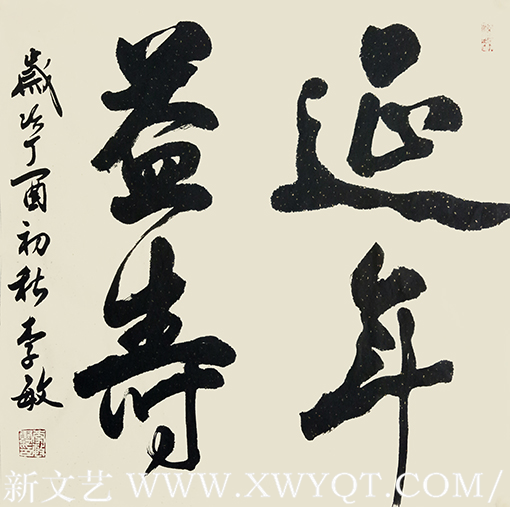 延年
益寿
岁次丁酉初秋李敏
新文艺 WWW.XWYQT.COM/